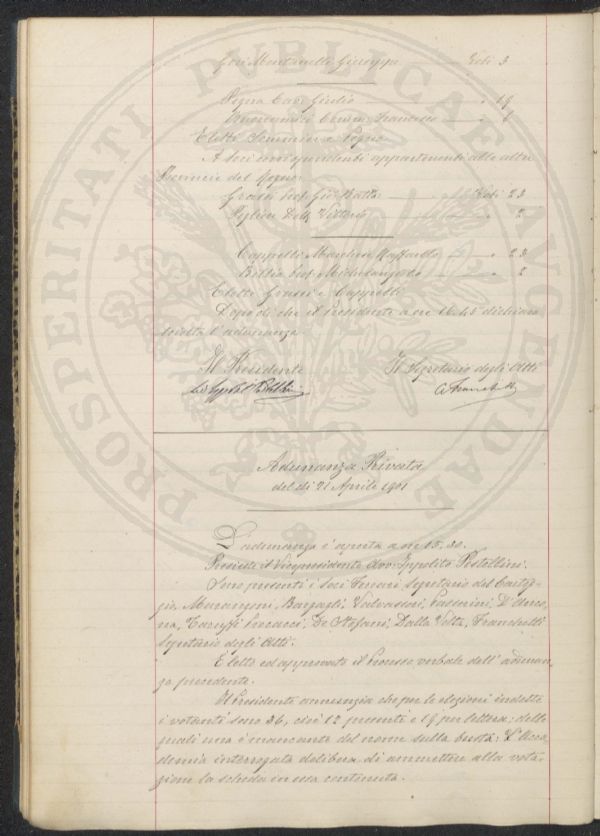 Gori Montanelli Giuseppe Voti 3
Pegna Cav. Giulio " 19
Francesco " 6
Eletti e Pegna.
A Soci corrispondenti appartenenti alle altre
Provincie del Regno:
Grassi Prof. Gio. Batta Voti 23
Peglion Dott. Vittorio " 2
Cappelli Marchese Raffaello " 23
Bellia Prof. Michelangelo " 2
Eletti Grassi e Cappelli.
Dopo di che il Presidente a ore 16.45 dichiara
sciolta l'adunanza.
Il Presidente Il Segretario degli Atti
Adunanza Privata
del dì 21 Aprile 1901
L'adunanza è aperta a ore 15.30.
Presiede il Vicepresidente Avv. Ippolito Pestellini.
Sono presenti i Soci Ferrari Segretario del Carteg-
gio, Marangoni, Bargagli, Valvassori, Passerini, D'Ancona,
na, Caruffi Pucci, De Stefani, Dalla Volta, Franchetti
Segretario degli Atti.
È letto ed approvato il Processo verbale dell'adunan-
za precedente.
Il Presidente annunzia che per le elezioni indette
i votanti sono 36, cioè 12 presenti e 19 per lettera; delle
quali una è mancante del nome sulla busta: L'Acca-
demia interrogata delibera di ammettere alla vota-
zione la scheda in essa contenuta.
PROSPERITATI PUBLICAE AUGENDAE